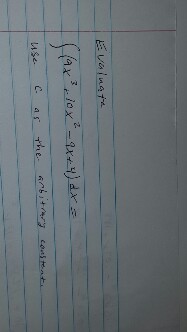 Evaluate
∫(9x³+10x²-9x+4)dx =
use C as the arbitrary constant.